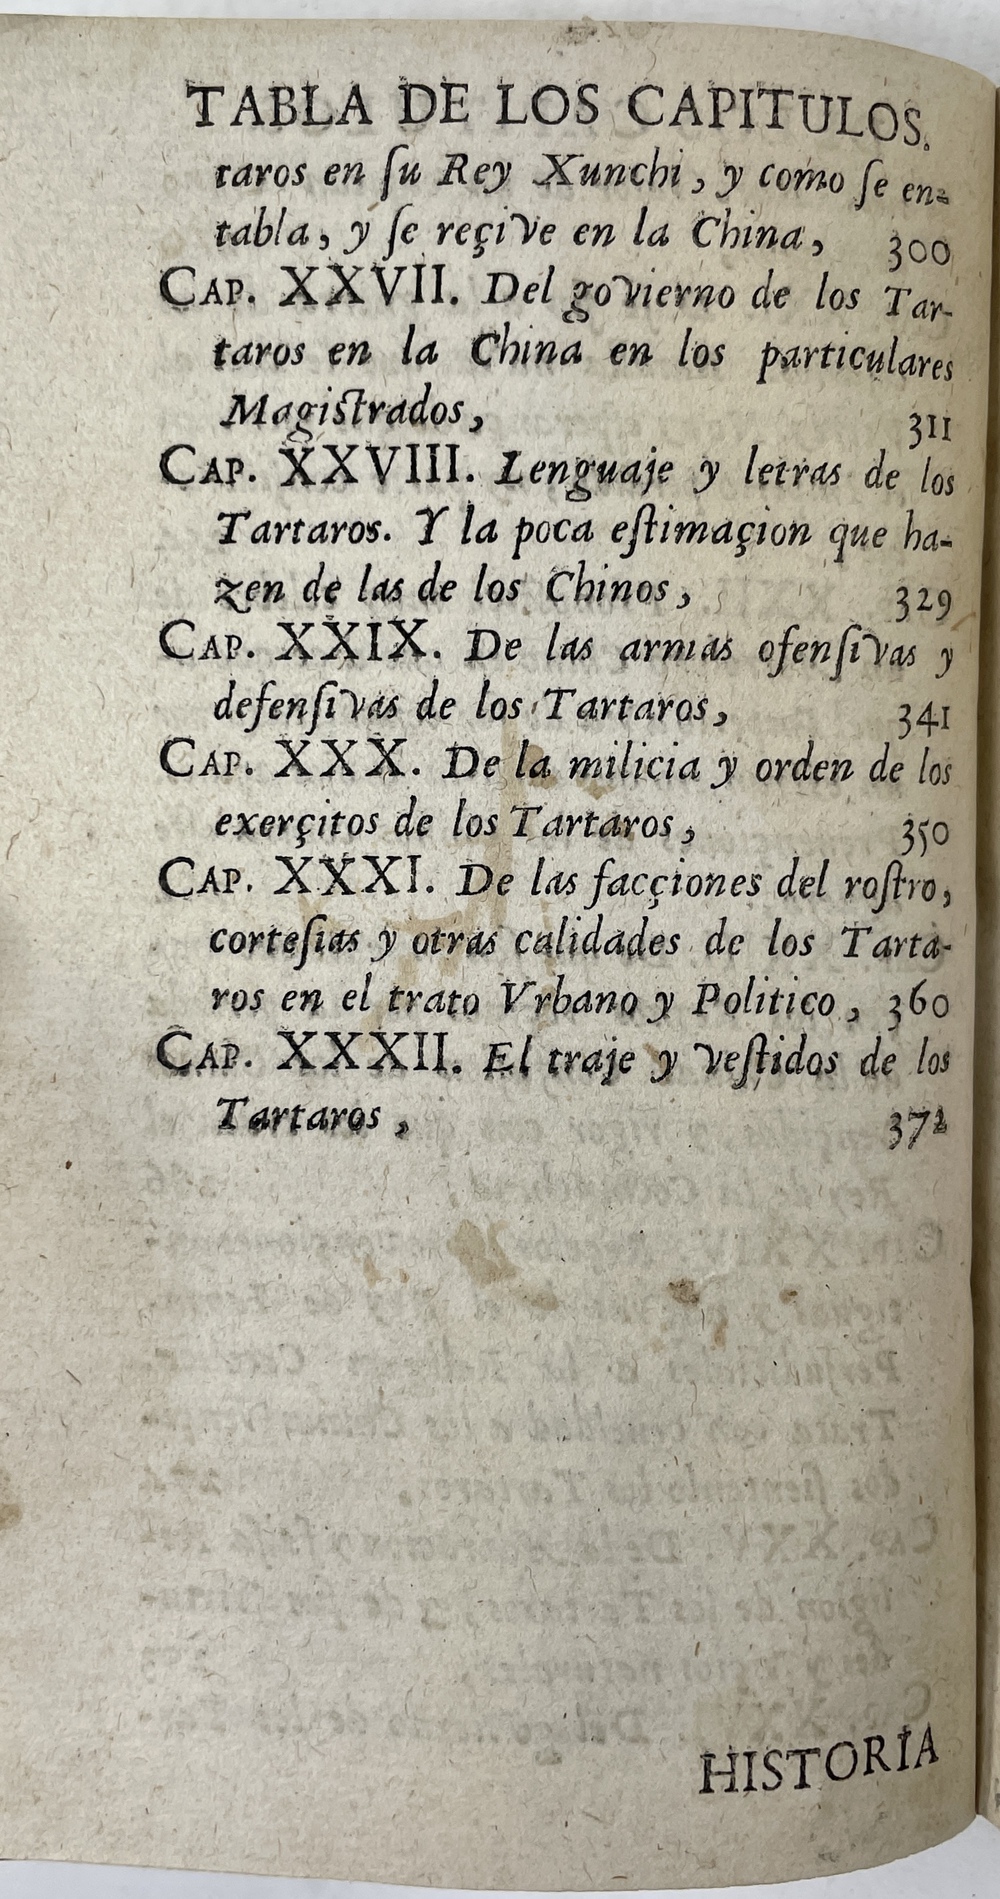 TABLA DE LOS CAPITULOS.
taros en ſu Rey Xunchi, y como ſe en-
tabla, y ſe reçive en la China, 300
CAP. XXVII. Del govierno de los Tar-
taros en la China en los particulares
Magiſtrados, 311
CAP. XXVIII. Lenguaje y letras de los
Tartaros. Y la poca eſtimaçion que ha-
zen de las de los Chinos, 329
CAP. XXIX. De las armas ofenſivas y
defenſivas de los Tartaros, 341
CAP. XXX. De la milicia y orden de los
exerçitos de los Tartaros, 350
CAP. XXXI. De las facçiones del roſtro,
corteſias y otras calidades de los Tarta-
ros en el trato Vrbano y Politico, 360
CAP. XXXII. El traje y veſtidos de los
Tartaros, 372
HISTORIA